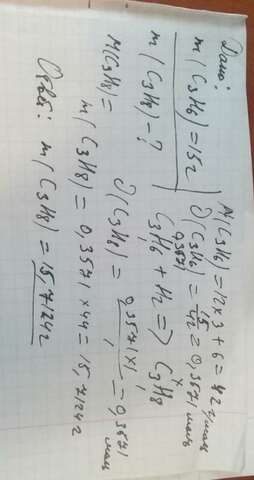 Дано:
m(C₃H₆)=15г
m(C₃H₈)-?
M(C₃H₈)=
M(C₃H₆)=12×3+6=42 г/моль
∂(C₃H₆)=15/42=0,3571 моль
0,3571 x
C₃H₆+H₂=>C₃H₈
1 1
∂(C₃H₈)=0,3571×1/1=0,3571 моль
m(C₃H₈)=0,3571×44=15,7124г
Ответ: m(C₃H₈)=15,7124г